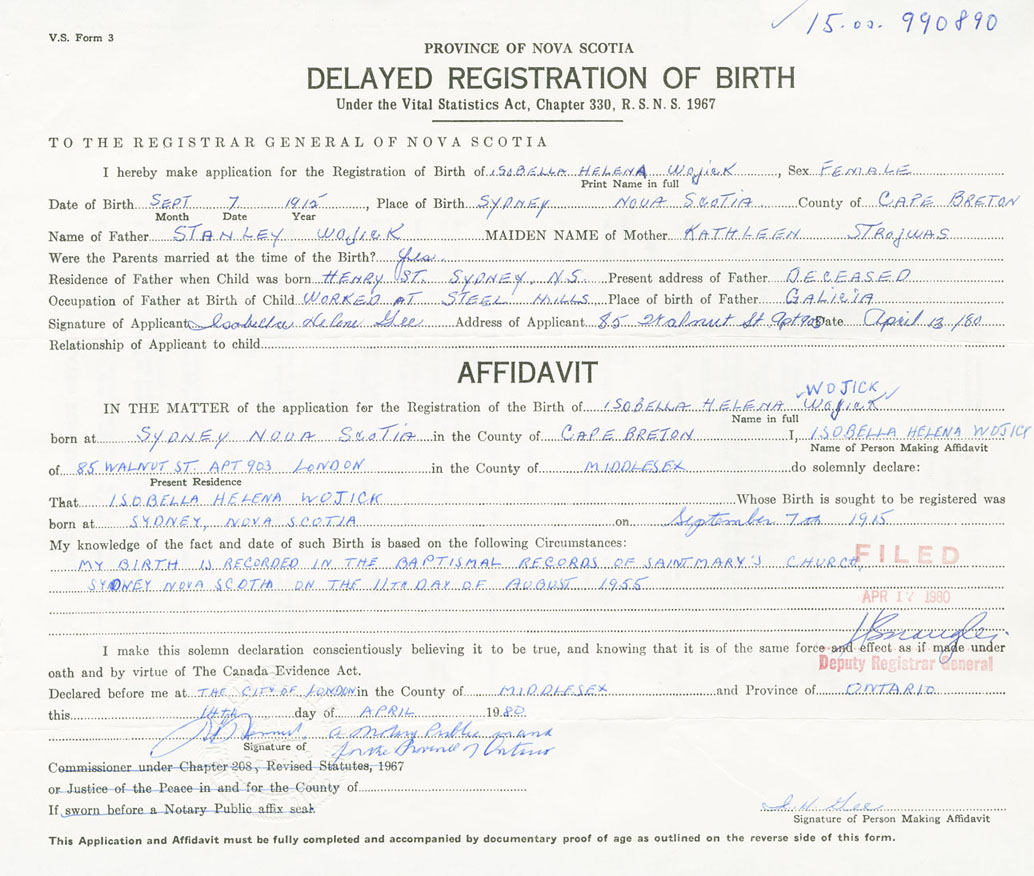 15.00 990890
V.S. Form 3
PROVINCE OF NOVA SCOTIA
DELAYED REGISTRATION OF BIRTH
Under the Vital Statistics Act, Chapter 330, R.S.N.S. 1967
TO THE REGISTRAR GENERAL OF NOVA SCOTIA
I hereby make application for the Registration of Birth of ISOBELLA HELENA WOJICK, Sex FEMALE
Print Name in full
Date of Birth SEPT 7 1915, Place of Birth SYDNEY NOVA SCOTIA County of CAPE BRETON
Month Date Year
Name of Father STANLEY WOJICK MAIDEN NAME of Mother KATHLEEN STROJWAS
Were the Parents married at the time of the Birth? Yes.
Residence of Father when Child was born HENRY ST. SYDNEY, N.S. Present address of Father DECEASED
Occupation of Father at Birth of Child WORKED AT STEEL MILLS Place of birth of Father GALICIA
Signature of Applicant Isobella Helena Gee Address of Applicant 85 Walnut St Apt 903 Date April 13/80
Relationship of Applicant to child
AFFIDAVIT
WOJICK
IN THE MATTER of the application for the Registration of the Birth of ISOBELLA HELENA WOJICK
Name in full
born at SYDNEY NOVA SCOTIA in the County of CAPE BRETON I, ISOBELLA HELENA WOJICK
Name of Person Making Affidavit
of 85 WALNUT ST. APT 903 LONDON in the County of MIDDLESEX do solemnly declare:
Present Residence
That ISOBELLA HELENA WOJICK Whose Birth is sought to be registered was
born at SYDNEY, NOVA SCOTIA on September 7th 1915
My knowledge of the fact and date of such Birth is based on the following Circumstances:
MY BIRTH IS RECORDED IN THE BAPTISMAL RECORDS OF SAINT MARY'S CHURCH,
FILED
SYDNEY NOVA SCOTIA ON THE 11TH DAY OF AUGUST 1955
APR 17 1980
I make this solemn declaration conscientiously believing it to be true, and knowing that it is of the same force and effect as if made under
Deputy Registrar General
oath and by virtue of The Canada Evidence Act.
Declared before me at THE CITY OF LONDON in the County of MIDDLESEX and Province of ONTARIO
this 14th day of APRIL 1980
a Notary Public in and
Signature of for the Province of Ontario
Commissioner under Chapter 208, Revised Statutes, 1967
or Justice of the Peace in and for the County of
If sworn before a Notary Public affix seal
I. H. Gee
Signature of Person Making Affidavit
This Application and Affidavit must be fully completed and accompanied by documentary proof of age as outlined on the reverse side of this form.